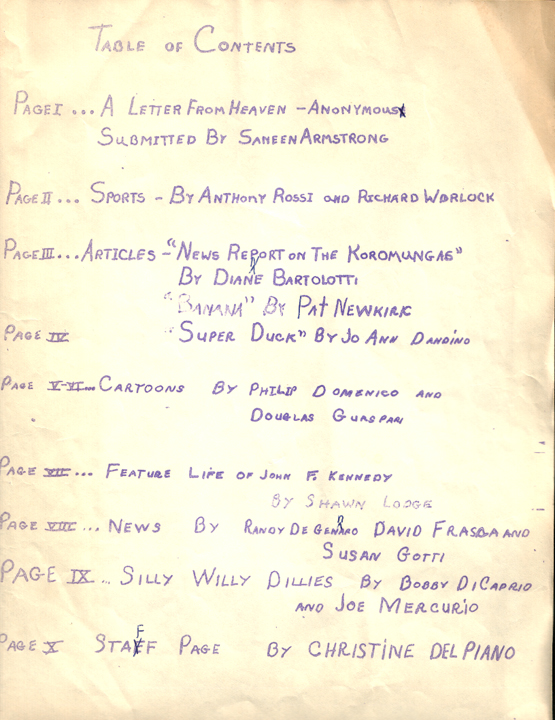 TABLE OF CONTENTS
PAGE I ... A LETTER FROM HEAVEN - ANONYMOUS
SUBMITTED BY SANEEN ARMSTRONG
PAGE II ... SPORTS - BY ANTHONY ROSSI AND RICHARD WORLOCK
PAGE III ... ARTICLES - "NEWS REPORT ON THE KOROMUNGAS"
BY DIANE BARTOLOTTI
"BANANA" BY PAT NEWKIRK
PAGE IV "SUPER DUCK" BY JO ANN DANDINO
PAGE V-VI... CARTOONS BY PHILIP DOMENICO AND
DOUGLAS GUASPARI
PAGE VII ... FEATURE LIFE OF JOHN F. KENNEDY
BY SHAWN LODGE
PAGE VIII ... NEWS BY RANDY DE GENARO DAVID FRASCA AND
SUSAN GOTTI
PAGE IX ... SILLY WILLY DILLIES BY BOBBY DICAPRIO
AND JOE MERCURIO
PAGE X STAFF PAGE BY CHRISTINE DEL PIANO